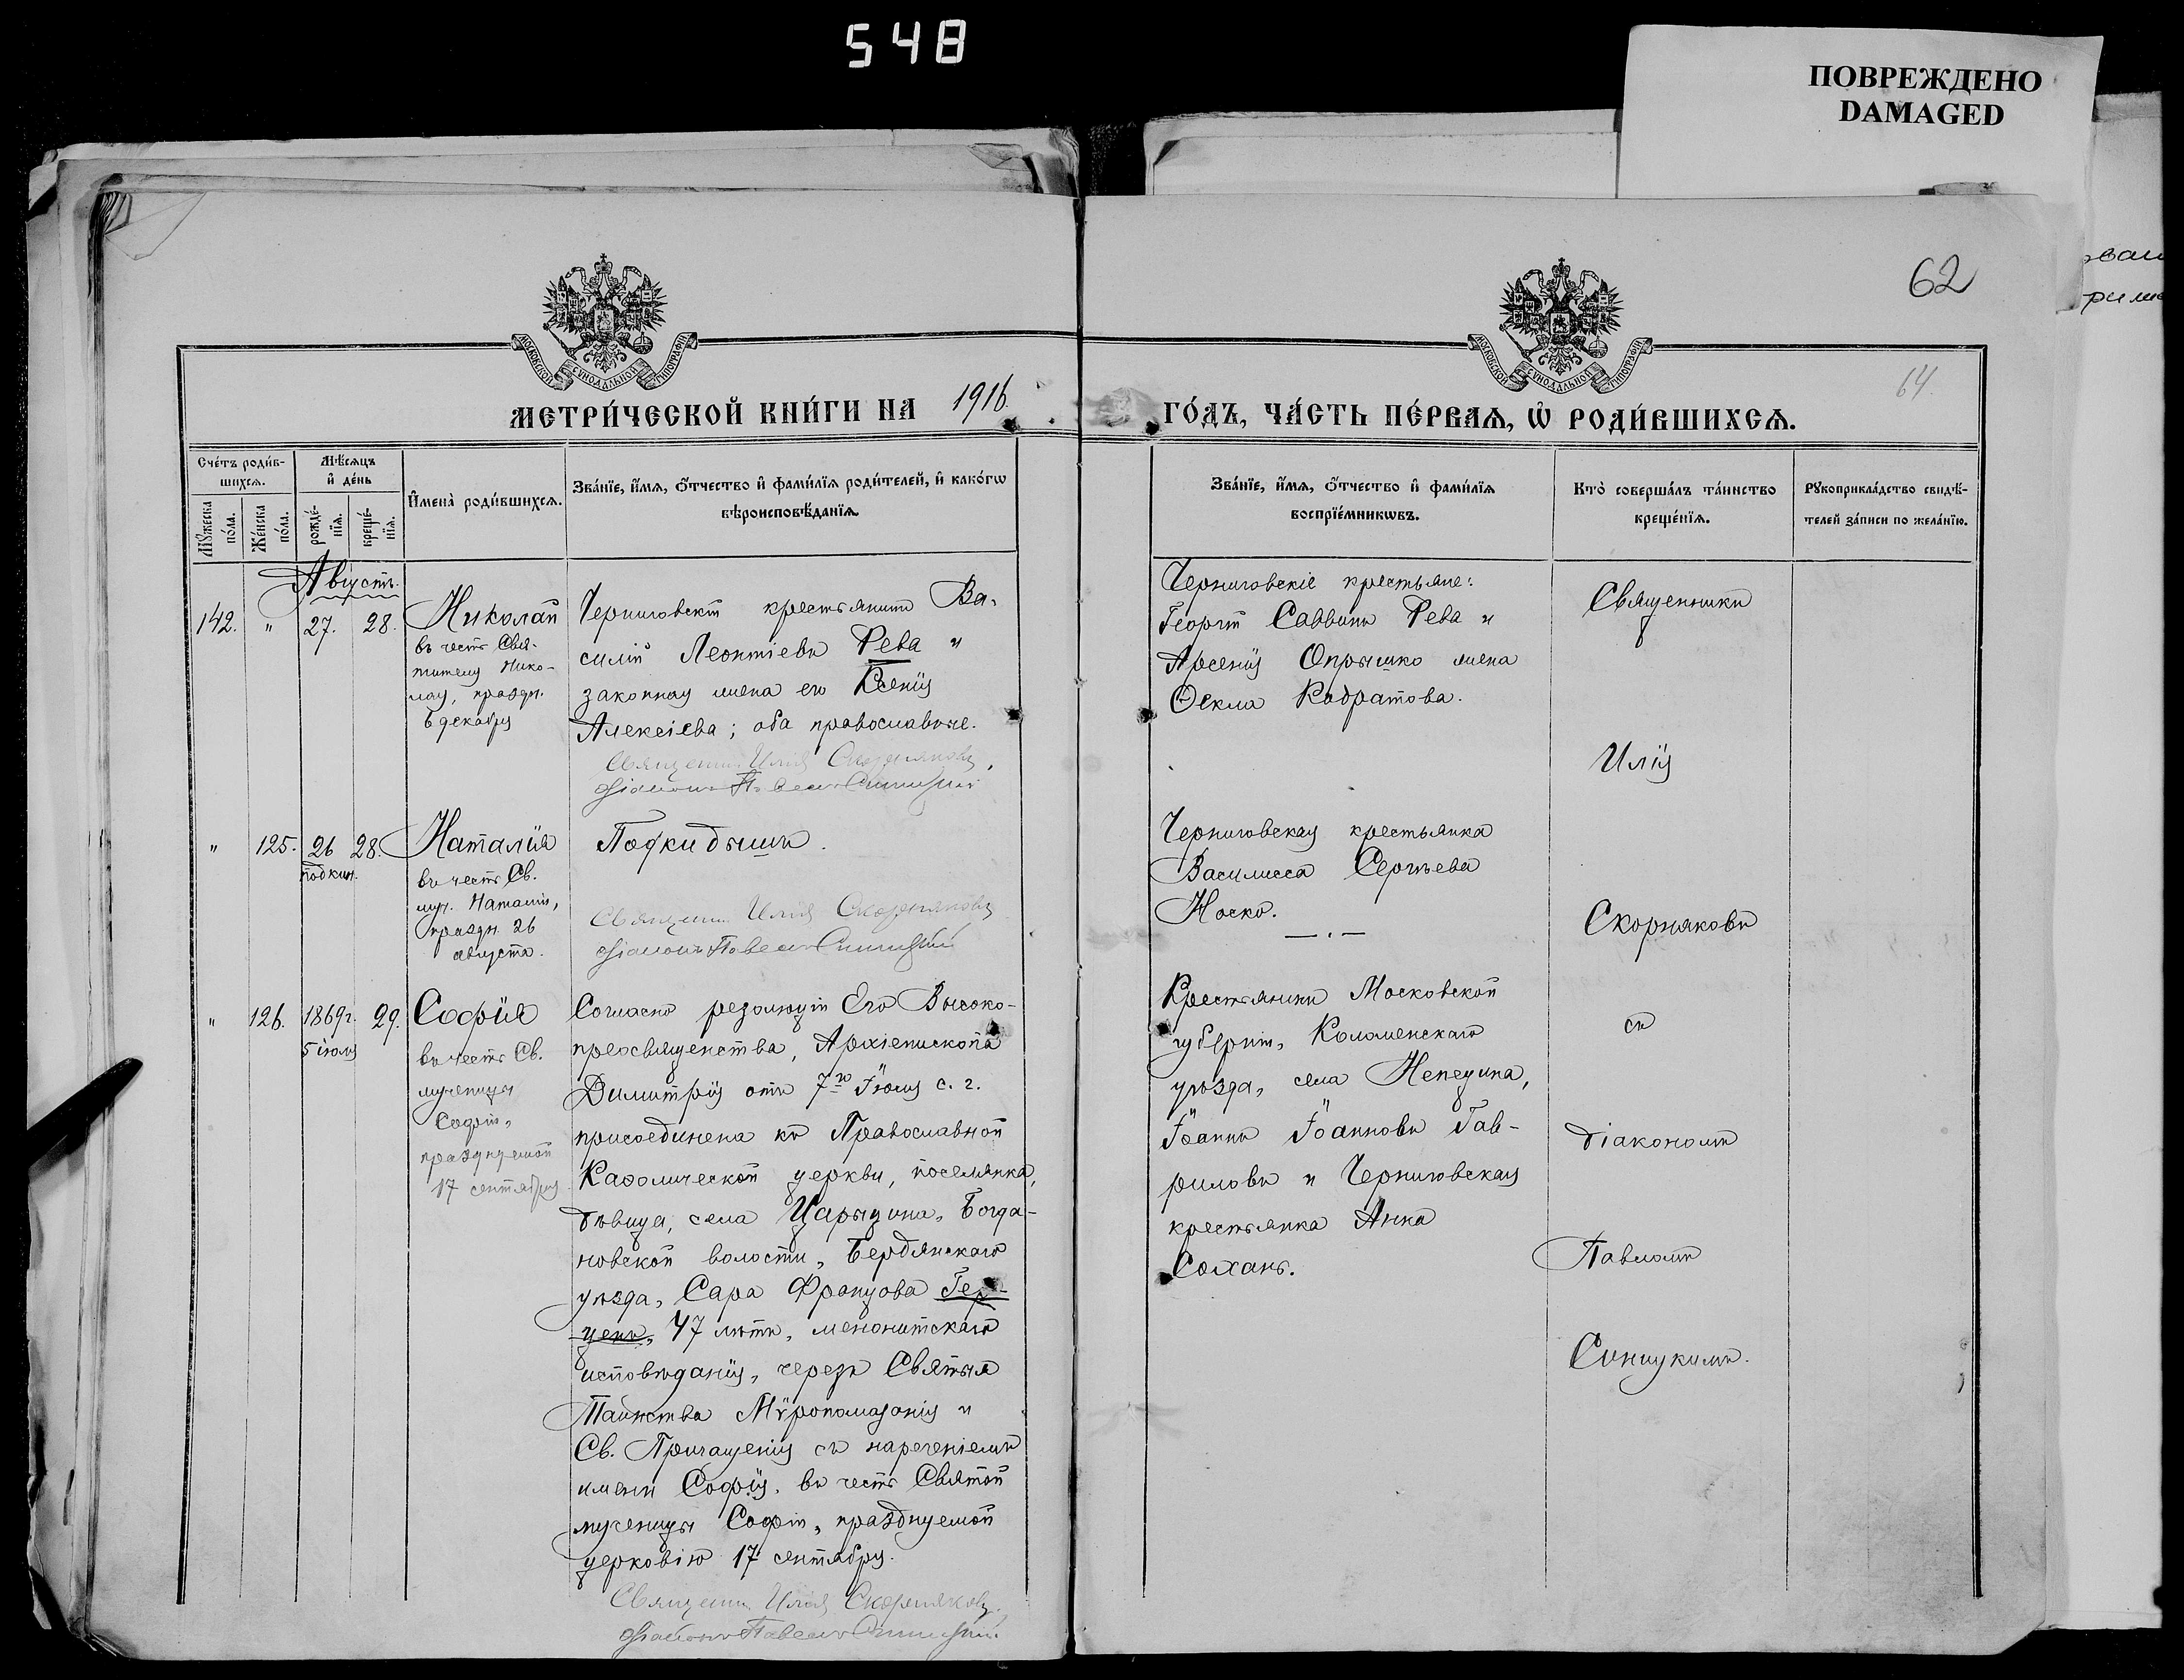 548
ПОВРЕЖДЕНО
DAMAGED
62
64.
МОСКОВСКОЙ СѴНОДАЛЬНОЙ ТИПОГРАФІИ
МОСКОВСКОЙ СѴНОДАЛЬНОЙ ТИПОГРАФІИ
МЕТРИ́ЧЕСКОЙ КНИ́ГИ НА 1916.
ГО́ДЪ, ЧА́СТЬ ПЕ́РВАѦ, Ѡ҆ РОДИ́ВШИХСѦ.
Сче́тъ роди́в-
шихсѧ.
Мꙋ́жеска
по́ла.
Же́нска
по́ла.
Мѣ́сѧцъ
и҆ де́нь
рожде́-
нїѧ.
креще́-
нїѧ.
И҆мена̀ роди́вшихсѧ.
Зва́нїе, и҆́мѧ, ѻ҆́тчество и҆ фами́лїѧ роди́телей, и҆ како́гѡ
вѣроисповѣ́данїѧ.
Зва́нїе, и҆́мѧ, ѻ҆́тчество и҆ фами́лїѧ
воспрїе́мникѡвъ.
Кто̀ соверша́лъ та́инство
креще́нїѧ.
Рꙋкоприкла́дство свидѣ́-
телей за́писи по жела́нїю.
Августъ.
142. " 27. 28.
Николай
въ честь Свя-
тителя Нико-
лая, праздн.
6 декабря
Черниговскій крестьянинъ Ва-
силій Леонтіевъ Рева и
законная жена его Ксенія
Алексіева; оба православные.
Священникъ Илія Скорняковъ.
Діаконъ Павелъ Синицкій
Черниговскіе крестьяне:
Георгій Саввинъ Рева и
Арсенія Опрышко жена
Ѳекла Кодратова.
Священникъ
Илія
" 125. 26 28.
подкин.
Наталія
въ честь Св.
муч. Наталіи,
праздн. 26
августа.
Подкидышъ.
Священникъ Илія Скорняковъ
Діаконъ Павелъ Синицкій
Черниговская крестьянка
Василисса Сергѣева
Носко.
Скорняковъ
" 126. 1869 г. 29.
5 іюля
Софія
въ честь Св.
мученицы
Софіи,
празднуемой
17 сентября
Согласно резолюціи Его Высоко-
преосвященства, Архіепископа
Димитрія отъ 7го Іюля с. г.
присоединена къ Православной
Каѳолической церкви, поселянка,
дѣвица, села Царицина, Богда-
новской волости, Бердянскаго
уѣзда, Сара Францова Гер-
ценъ, 47 лѣтъ, менонитскаго
исповѣданія, черезъ Святыя
Таинства Мѵропомазанія и
Св. Причащенія съ нареченіемъ
имени Софія, въ честь Святой
мученицы Софіи, празднуемой
церковію 17 сентября.
Священникъ Илія Скорняковъ.
Діаконъ Павелъ Синицкій
Крестьянинъ Московской
губерніи, Коломенскаго
уѣзда, села Непецина,
Іоаннъ Іоанновъ Гав-
риловъ и Черниговская
крестьянка Анна
Солхань.
съ
діакономъ
Павломъ
Синицкимъ.